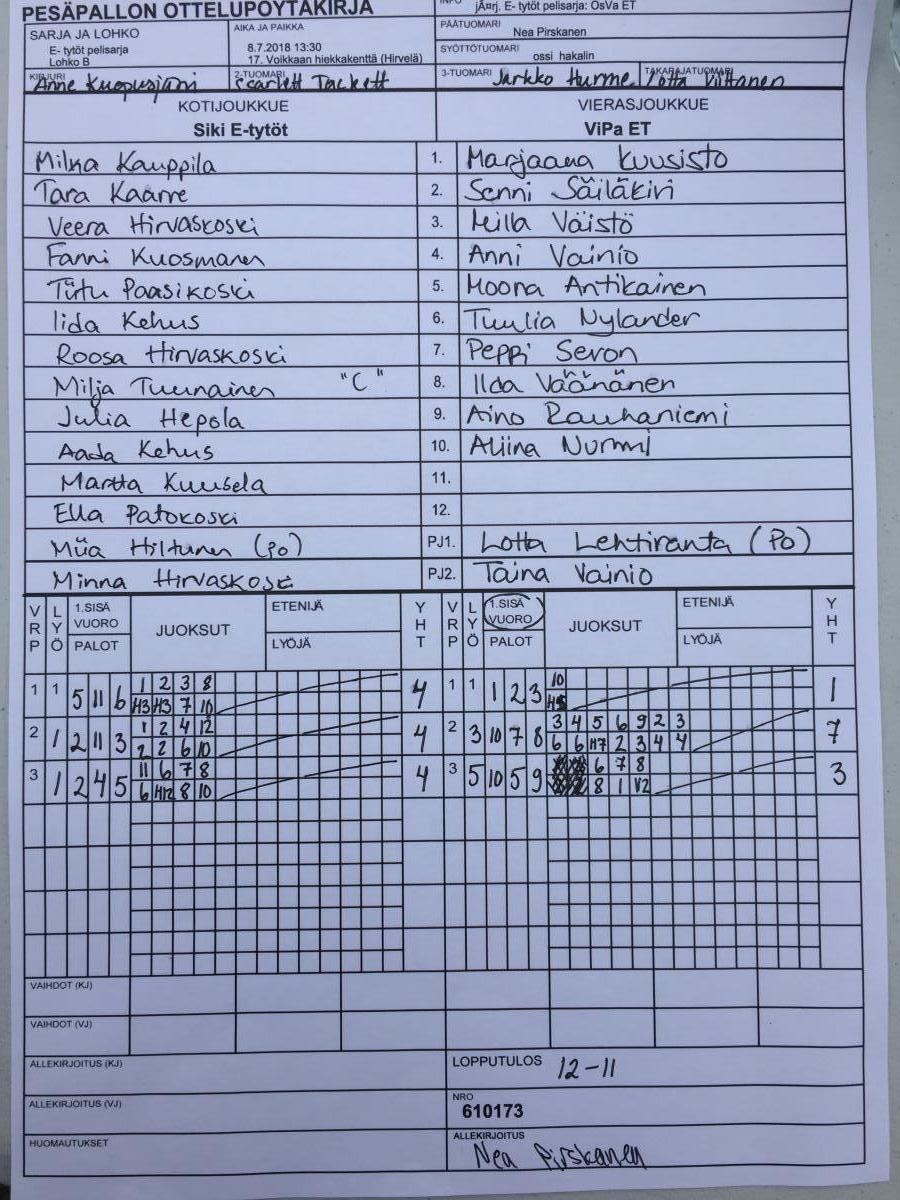 PESÄPALLON OTTELUPÖYTÄKIRJA
jÃ¤rj. E- tytöt pelisarja: OsVa ET
SARJA JA LOHKO
E- tytöt pelisarja
Lohko B
AIKA JA PAIKKA
8.7.2018 13:30
17. Voikkaan hiekkakenttä (Hirvelä)
PÄÄTUOMARI
Nea Pirskanen
SYÖTTÖTUOMARI
ossi hakalin
KIRJURI
Anne Kuopusjärvi
2-TUOMARI
Scarlett Tackett
3-TUOMARI Jarkko Hurme
TAKARAJATUOMARI
Lotta Viltanen
KOTIJOUKKUE VIERASJOUKKUE
Siki E-tytöt ViPa ET
Milka Kauppila 1. Marjaana Kuusisto
Tara Kaarre 2. Senni Säiläkivi
Veera Hirvaskoski 3. Milla Väistö
Fanni Kuosmanen 4. Anni Vainio
Tiitu Paasikoski 5. Moona Antikainen
Iida Kehus 6. Tuulia Nylander
Roosa Hirvaskoski 7. Peppi Sevon
Milja Tuunainen "C" 8. Ilda Väänänen
Julia Hepola 9. Aino Rauhaniemi
Aada Kehus 10. Aliina Nurmi
Martta Kuusela 11.
Ella Patokoski 12.
Miia Hiltunen (po) PJ1. Lotta Lehtiranta (Po)
Minna Hirvaskoski PJ2. Taina Vainio
VRP LYÖ 1.SISÄ VUORO PALOT JUOKSUT ETENIJÄ LYÖJÄ YHT VRP LYÖ 1.SISÄ VUORO PALOT JUOKSUT ETENIJÄ LYÖJÄ YHT
1 2 3 8 10
1 1 5 11 6 4 1 1 1 2 3 1
H3 H3 7 10 H5
1 2 4 12 3 4 5 6 9 2 3
2 1 2 11 3 4 2 3 10 7 8 7
2 2 6 10 6 6 H7 2 3 4 4
11 6 7 8 6 7 8
3 1 2 4 5 4 3 5 10 5 9 3
6 H12 8 10 8 1 V2
VAIHDOT (KJ)
VAIHDOT (VJ)
ALLEKIRJOITUS (KJ) LOPPUTULOS 12-11
ALLEKIRJOITUS (VJ) NRO
610173
HUOMAUTUKSET ALLEKIRJOITUS
Nea Pirskanen